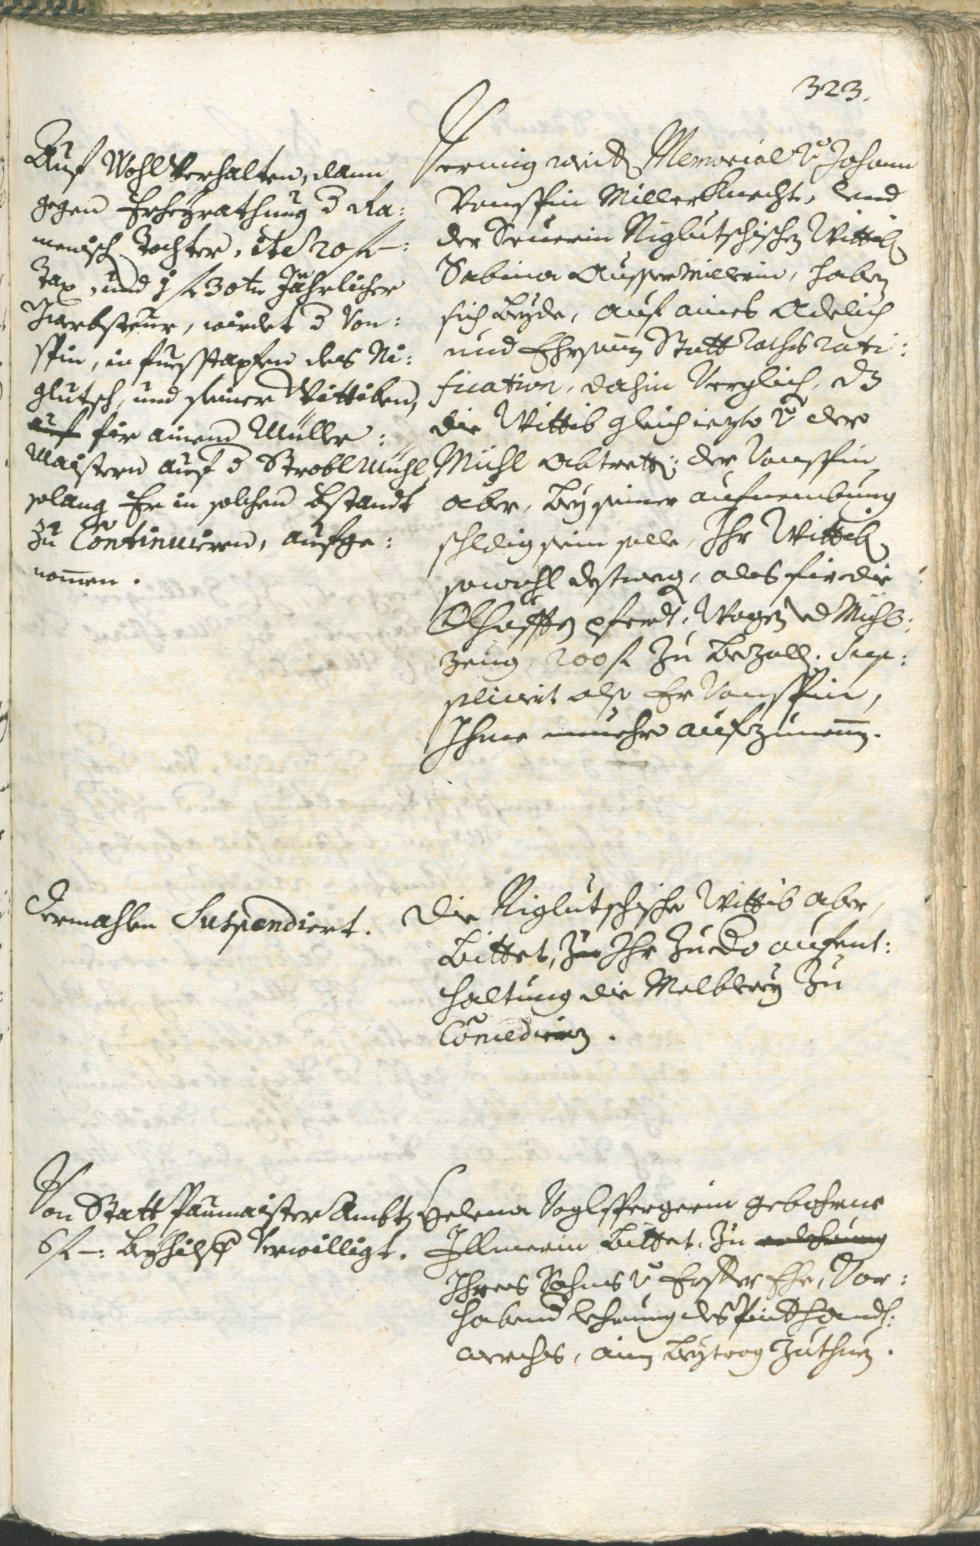 323.
Auf Wohl Verhalten, dann
gegen Erheyrathung d Ra:
menisch Tochter, ite 20 f —:
Tax, und 1 f 30 kr Jährlicher
Gwerbsteur, wirdet d Von:
spin, in fuesstapfen des Ni:
glutsch, und seiner Wittiben,
auf für ainem Müller:
Maistern auf d Strobl Mühl,
solang Er in solchen Bstandt
zu Continuiren, aufge:
nomen.
Vermig Memorial v Johann
Vonspin Miller Knecht, und
der Niglutschischen Wittib
Sabina Ausserwillerin, haben
sich beyde, auf aines Adelich
und Ehrsamen Statt Raths rati:
fication, dahin Verglich, dz
die Wittib gleich iezo v dero
Mühl abtrette; der Vonspin
aber, bey seiner aufnembung
schldig sein solle, Ihr Wittib
sowohl destweg, als für die
pferdt, Wagen Mühl:
zeug, 200 f zu bezalle. Sup:
pliciert also Er Vonspin,
Ihme nunmehr aufzunemen.
Dermahlen Suspendiert.
Die Niglutschische Wittib aber,
bittet, zu Ihr zu aufent:
haltung die Melblerey zu
Comedieren.
Von Statt Paumaister Ambt
6 f —: Beyhilf Verwilligt.
Helena Voglspergerin gebohrne
Illmerin bittet, zu erlehrnung
Ihres Sohns v Erster Ehe, Vor:
habend lehrnung des Pindthandt:
werchs, ain beytrag zuthun.